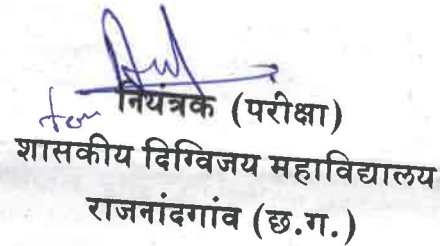 for नियंत्रक (परीक्षा)
शासकीय दिग्विजय महाविद्यालय
राजनांदगांव (छ.ग.)